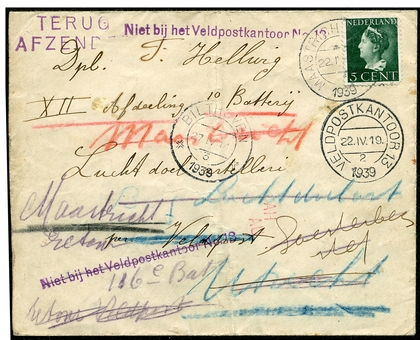 TERUG
AFZENDE
Niet bij het Veldpostkantoor No. 13
NEDERLAND
5 CENT
MAASTRICHT
1939
Dpl. F. Hellwig
XII Afdeeling 1e Batterij
Maastricht
BILTHOVEN
1939
VELDPOSTKANTOOR 13
22.IV.19.
2
1939
Luchtdoelartillerie
Maastricht
per Veldpost
Soesterberg
Niet bij het Veldpostkantoor No. 13
116e Bat
Utrecht